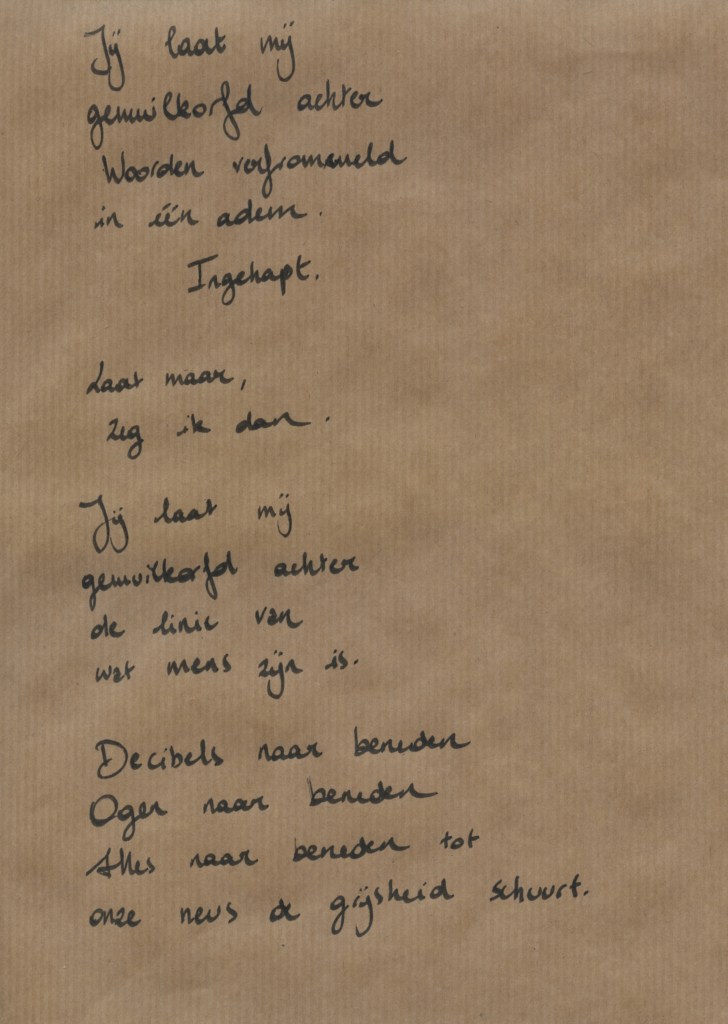 Jij laat mij
gemuilkorfd achter
Woorden verfrommeld
in één adem.
Ingehapt.
Laat maar,
zeg ik dan.
Jij laat mij
gemuilkorfd achter
de linie van
wat mens zijn is.
Decibels naar beneden
Ogen naar beneden
Alles naar beneden tot
onze neus de grijsheid schuurt.